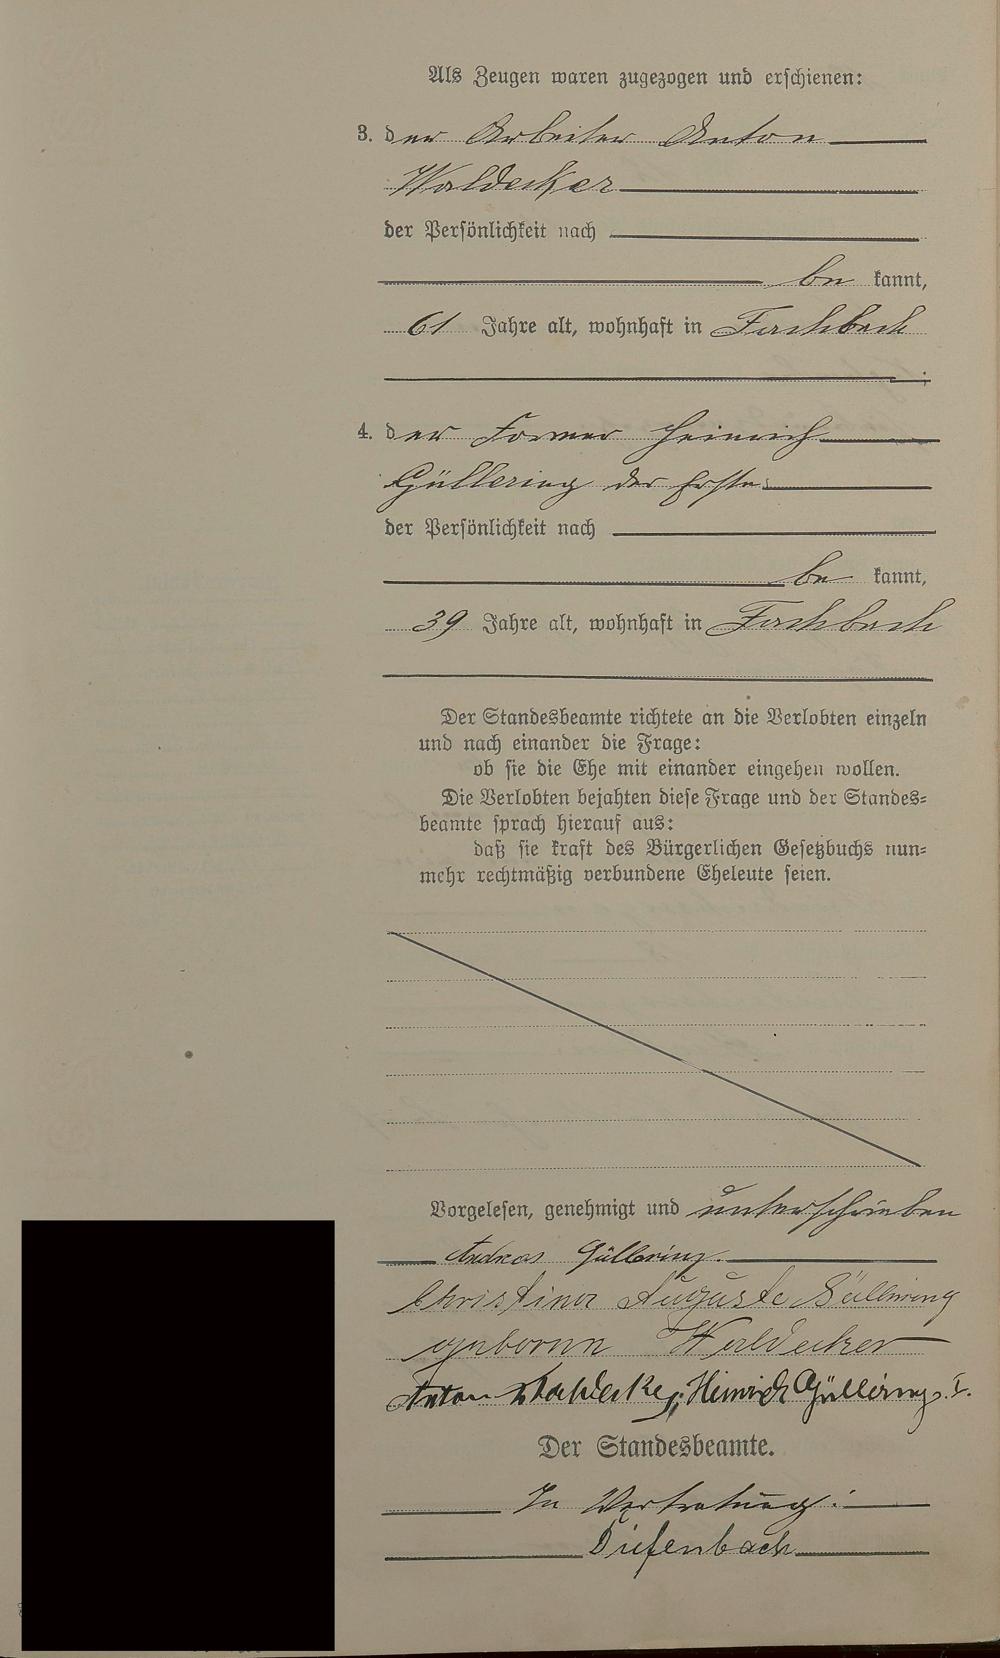 Als Zeugen waren zugezogen und erschienen:
3. der Arbeiter Anton
Waldecker
der Persönlichkeit nach
be kannt,
61 Jahre alt, wohnhaft in Fachbach
;
4. der Former Heinrich
Güllering der Erste
der Persönlichkeit nach
be kannt,
39 Jahre alt, wohnhaft in Fachbach
Der Standesbeamte richtete an die Verlobten einzeln
und nach einander die Frage:
ob sie die Ehe mit einander eingehen wollen.
Die Verlobten bejahten diese Frage und der Standes-
beamte sprach hierauf aus:
daß sie kraft des Bürgerlichen Gesetzbuchs nun-
mehr rechtmäßig verbundene Eheleute seien.
Vorgelesen, genehmigt und unterschrieben
Andreas Güllering.
Christina Auguste Güllering
geborene Waldecker
Anton Waldecker, Heinrich Güllering I.
Der Standesbeamte.
In Vertretung:
Diefenbach